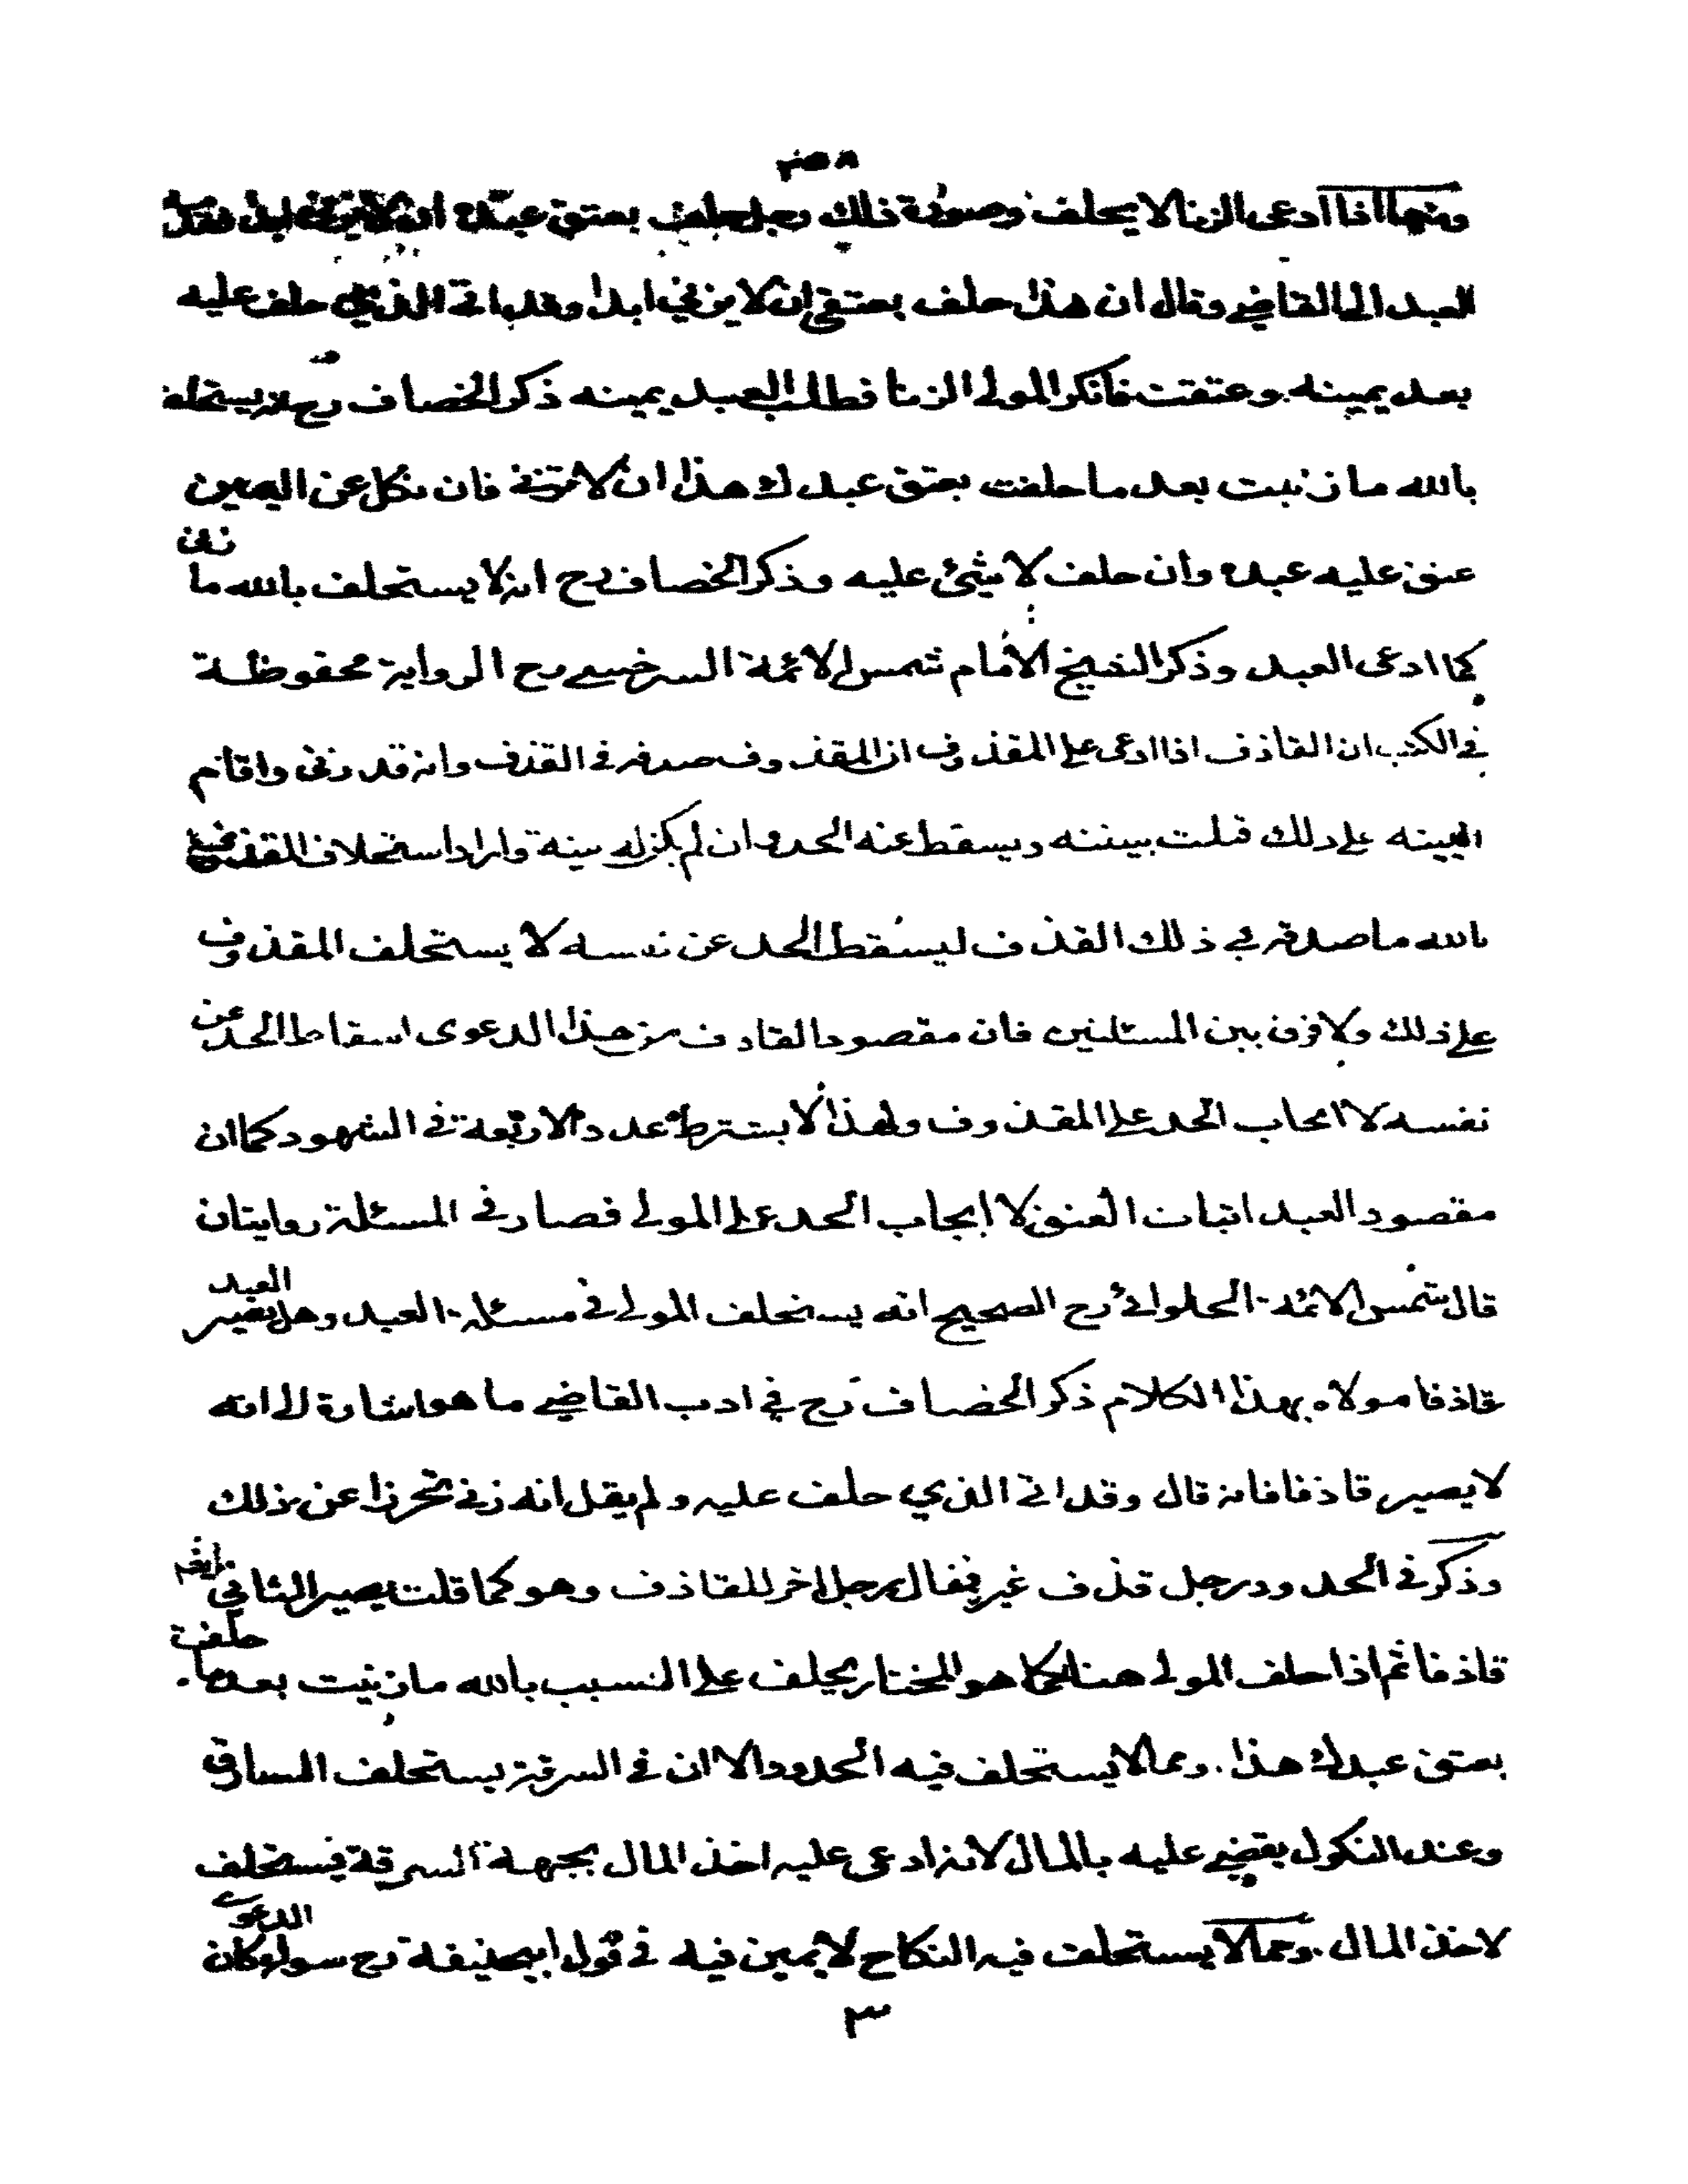 ومنها اذا ادعى الزنا لا يحلف وصورة ذلك رجل حلف بعتق عبده ان لا يزني ابدا فقدم
العبد الى القاضي وقال ان هذا حلف بعتقي ان لا يزني ابدا وقد اتى الذي حلف عليه
بعد يمينه وعتقت فانكر المولى الزنا فطلب العبد يمينه ذكر الخصاف رح انه يستحلف
بالله ما زنيت بعد ما حلفت بعتق عبدك هذا ان لا تزني فان نكل عن اليمين
عتق عليه عبده وان حلف لا شئ عليه وذكر الخصاف رح انه لا يستحلف بالله ما زنى
كما ادعى العبد وذكر الشيخ الامام شمس الائمة السرخسي رح الرواية محفوظة
في الكتب ان القاذف اذا ادعى على المقذوف ان المقذوف صدقه في القذف وانه قد زنى واقام
البينه على ذلك قبلت بينته ويسقط عنه الحد وان لم يكن له بينة واراد استحلاف المقذوف
بالله ما صدقه في ذلك القذف ليسقط الحد عن نفسه لا يستحلف المقذوف
على ذلك ولا فرق بين المسئلتين فان مقصود القاذف من هذا الدعوى اسقاط الحد عن
نفسه لا ايجاب الحد على المقذوف ولهذا لا يشترط عدد الاربعة في الشهود كما ان
مقصود العبد اثبات العتق لا ايجاب الحد على المولى فصار في المسئلة روايتان
قال شمس الائمة الحلوائي رح الصحيح انه يستحلف المولى في مسئلة العبد وهل يصير العبد
قاذفا مولاه بهذا الكلام ذكر الخصاف رح في ادب القاضي ما هو اشارة الى انه
لا يصير قاذفا فانه قال وقد اتى الذي حلف عليه ولم يقل انه زنى تحرزا عن ذلك
وذكر في الحدود رجل قذف غيره فقال رجل اخر للقاذف وهو كما قلت يصير الثاني ايضا
قاذفا ثم اذا حلف المولى هنا كما هو المختار يحلف على السبب بالله ما زنيت بعد ما حلفت
بعتق عبدك هذا ومما لا يستحلف فيه الحدود الا ان في السرقة يستحلف السارق
وعند النكول يقضي عليه بالمال لانه ادعى عليه اخذ المال بجهة السرقة فيستحلف
لاخذ المال ومما لا يستحلف فيه النكاح لا يمين فيه في قول ابيحنيفة رح سواء كان الدعوى
٣